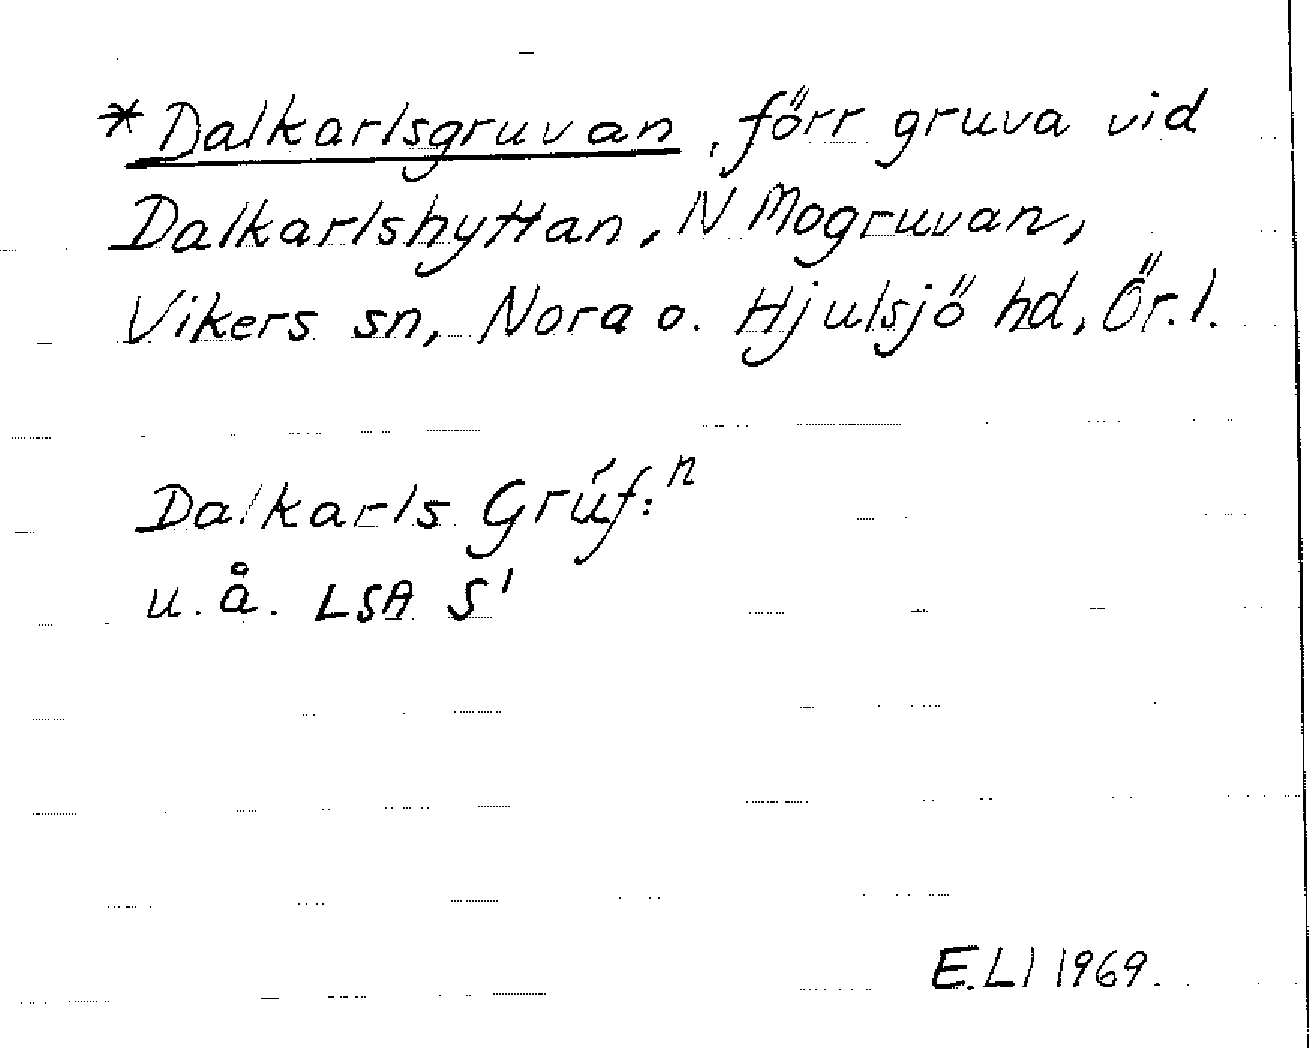 *Dalkarlsgruvan, förr gruva vid
Dalkarlshyttan, N Mogruvan,
Vikers sn, Nora o. Hjulsjö hd, Ör.l.
Dalkarls Grúf:ⁿ
u.å. LSA S'
E.Ll 1969.